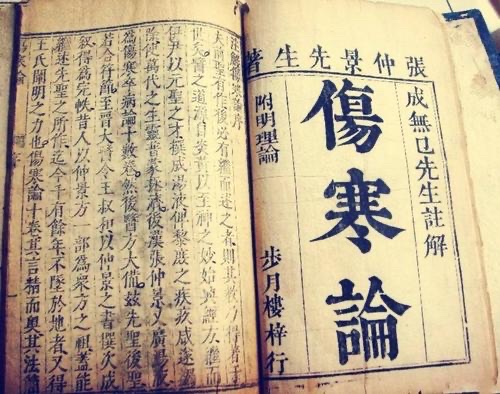 張仲景先生著
成無己先生註解
傷寒論
附明理論
步月樓梓行
注解傷寒論序
夫前聖有作後必有繼而述之者則其教乃得著于
世矣醫之道源自炎黄以至神之妙始興經方繼而
伊尹以元聖之才撰成湯液俾黎庶之疾疚咸遂蠲
除使萬代之生靈普蒙拯濟後漢張仲景又廣湯液
為傷寒卒病論十數卷然後醫方大備兹先聖後聖
若合符節至晉大醫令王叔和以仲景之書撰次成
敘得為完帙昔人以仲景方一部為衆方之祖蓋能
繼述先聖之所作迄今千有餘年不墜於地者又得
王氏闡明之力也傷寒論十卷其言精而奥其法簡
傷寒論